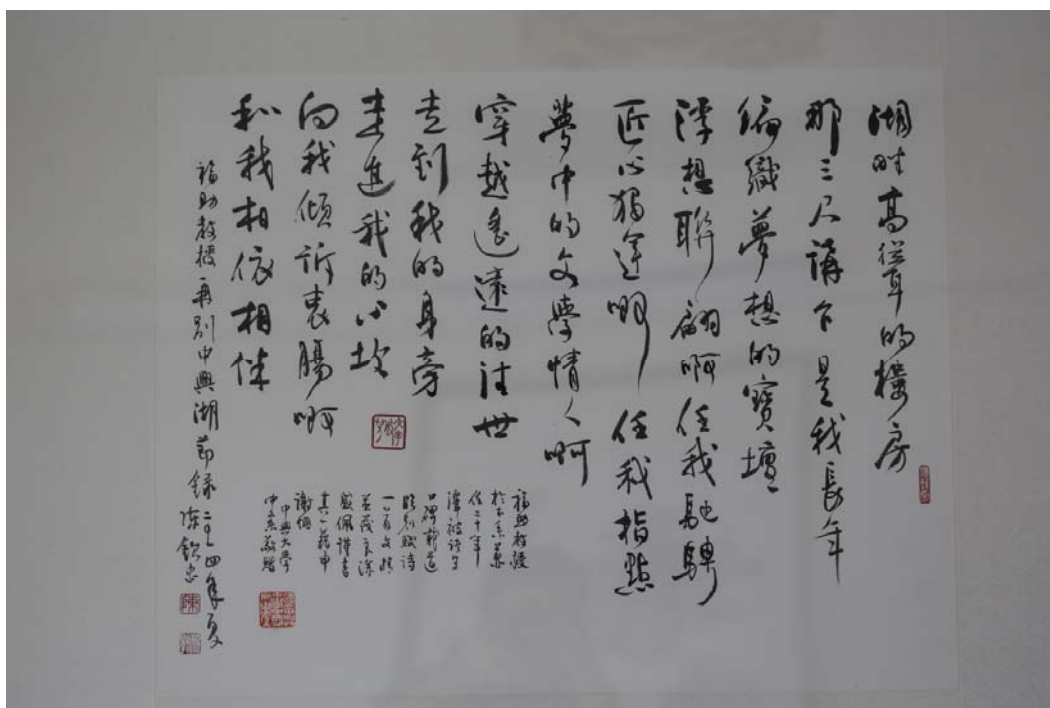 湖畔高聳的樓房
那三尺講台是我長年
編織夢想的寶壇
浮想聯翩啊任我馳騁
匠心獨運啊任我指點
夢中的文學情人啊
穿越遙遠的往世
走到我的身旁
走進我的心坎
向我傾訴衷腸啊
和我相依相伴
福助教授
於本系兼
任二十年
澤被諸生
口碑載道
臨別賦詩
一百文情
並茂良深
感佩謹書
其一藉申
謝悃
中興大學
中系敬贈
福助教授再別中興湖節錄二〇一四年夏陳欽忠